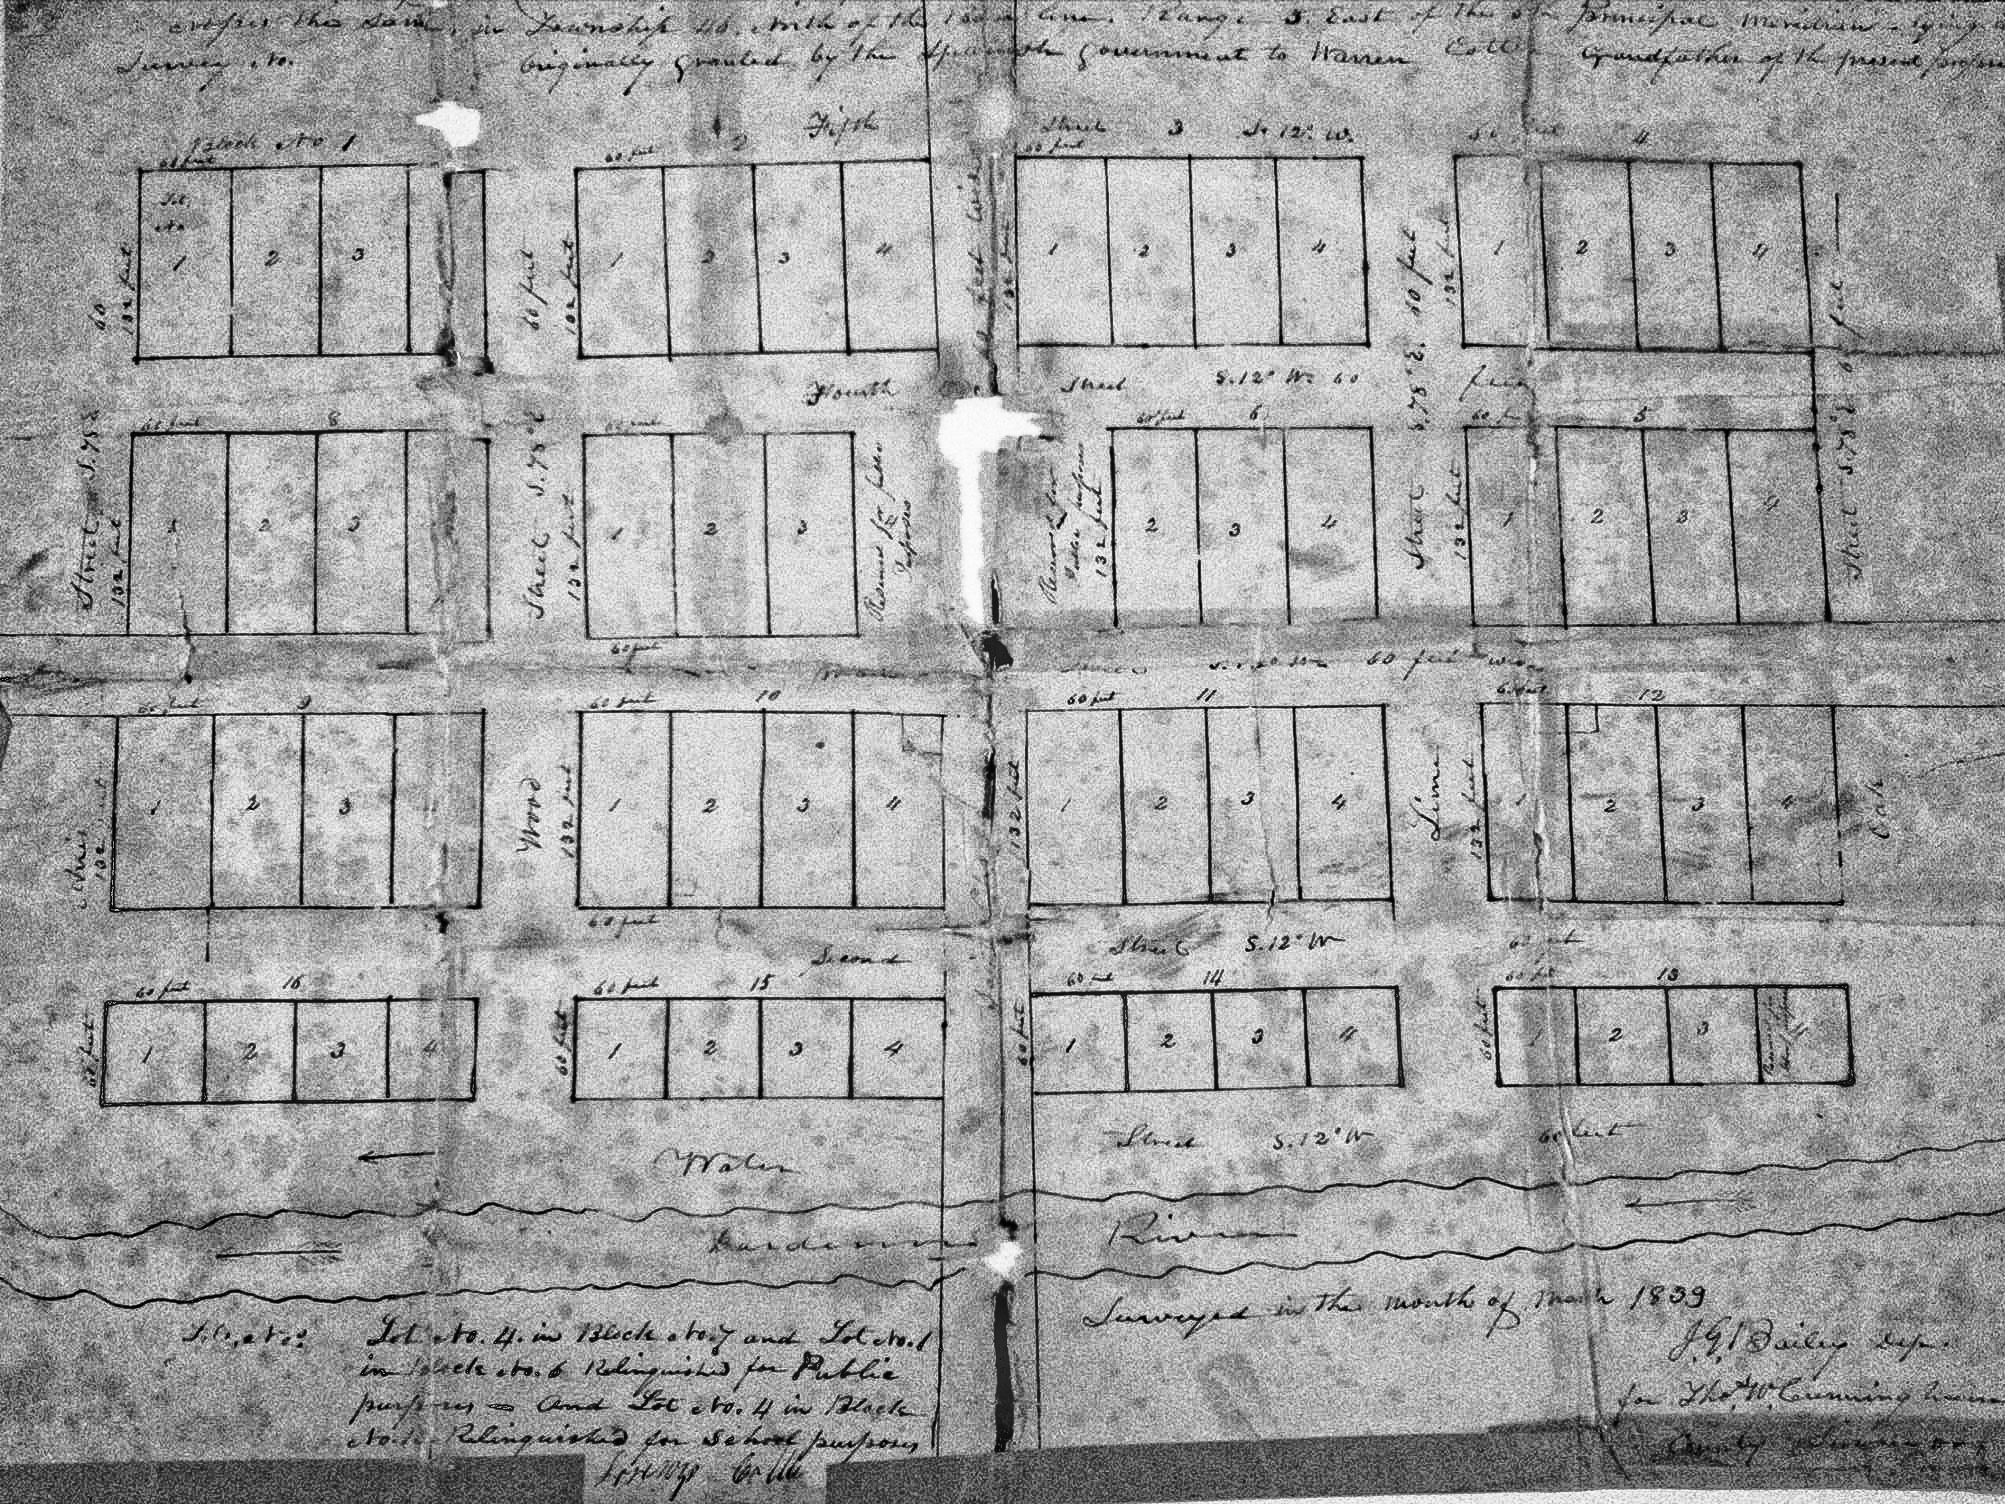 in Township 46. North of the line. Range 3. East of the 5th Principal Meridian
Survey No. originally granted by the Spanish Government to Warren Cottle Grandfather of the present
Block No 1 2 Fifth Street 3 S. 12° W. 4
60 feet 60 feet 60 feet
Lot
No
1 2 3
1 2 3 4
1 2 3 4
1 2 3 4
60 132 feet
60 feet 132 feet
60 feet 132 feet
60 feet
Fourth Street S. 12° W. 60 feet
60 feet 8 60 feet 60 feet 6 60 5
1 2 3
1 2 3
2 3 4
1 2 3 4
Street S. 78° E
132 feet
Street S. 78° E
132 feet
Reserved for public
Purposes
Reserved for
Public purposes
132 feet
Street S. 78° E.
132 feet
Street S. 78° E 60 feet
60 feet
Main Street 60 feet wide
60 feet 9 60 feet 10 60 feet 11 60 feet 12
1 2 3
1 2 3 4
1 2 3 4
1 2 3 4
132 feet
Wood
132 feet
132 feet
Lime
132 feet
Oak
60 feet
Second Street S. 12° W 60 feet
60 feet 16 60 feet 15 60 feet 14 60 feet 13
1 2 3 4
1 2 3 4
1 2 3 4
1 2 3 4
60 feet
60 feet
60 feet
60 feet
Water Street S. 12° W 60 feet
Dardenne River
Surveyed in the month of March 1839
J. G. Bailey Dep.
for Thos. W. Cunning
County Surveyor
Lot No. 4. in Block No. 7 and Lot No. 1
in Block No. 6 Relinquished for Public
purposes = And Lot No. 4 in Block
No. 13 Relinquished for School purposes
Cottle